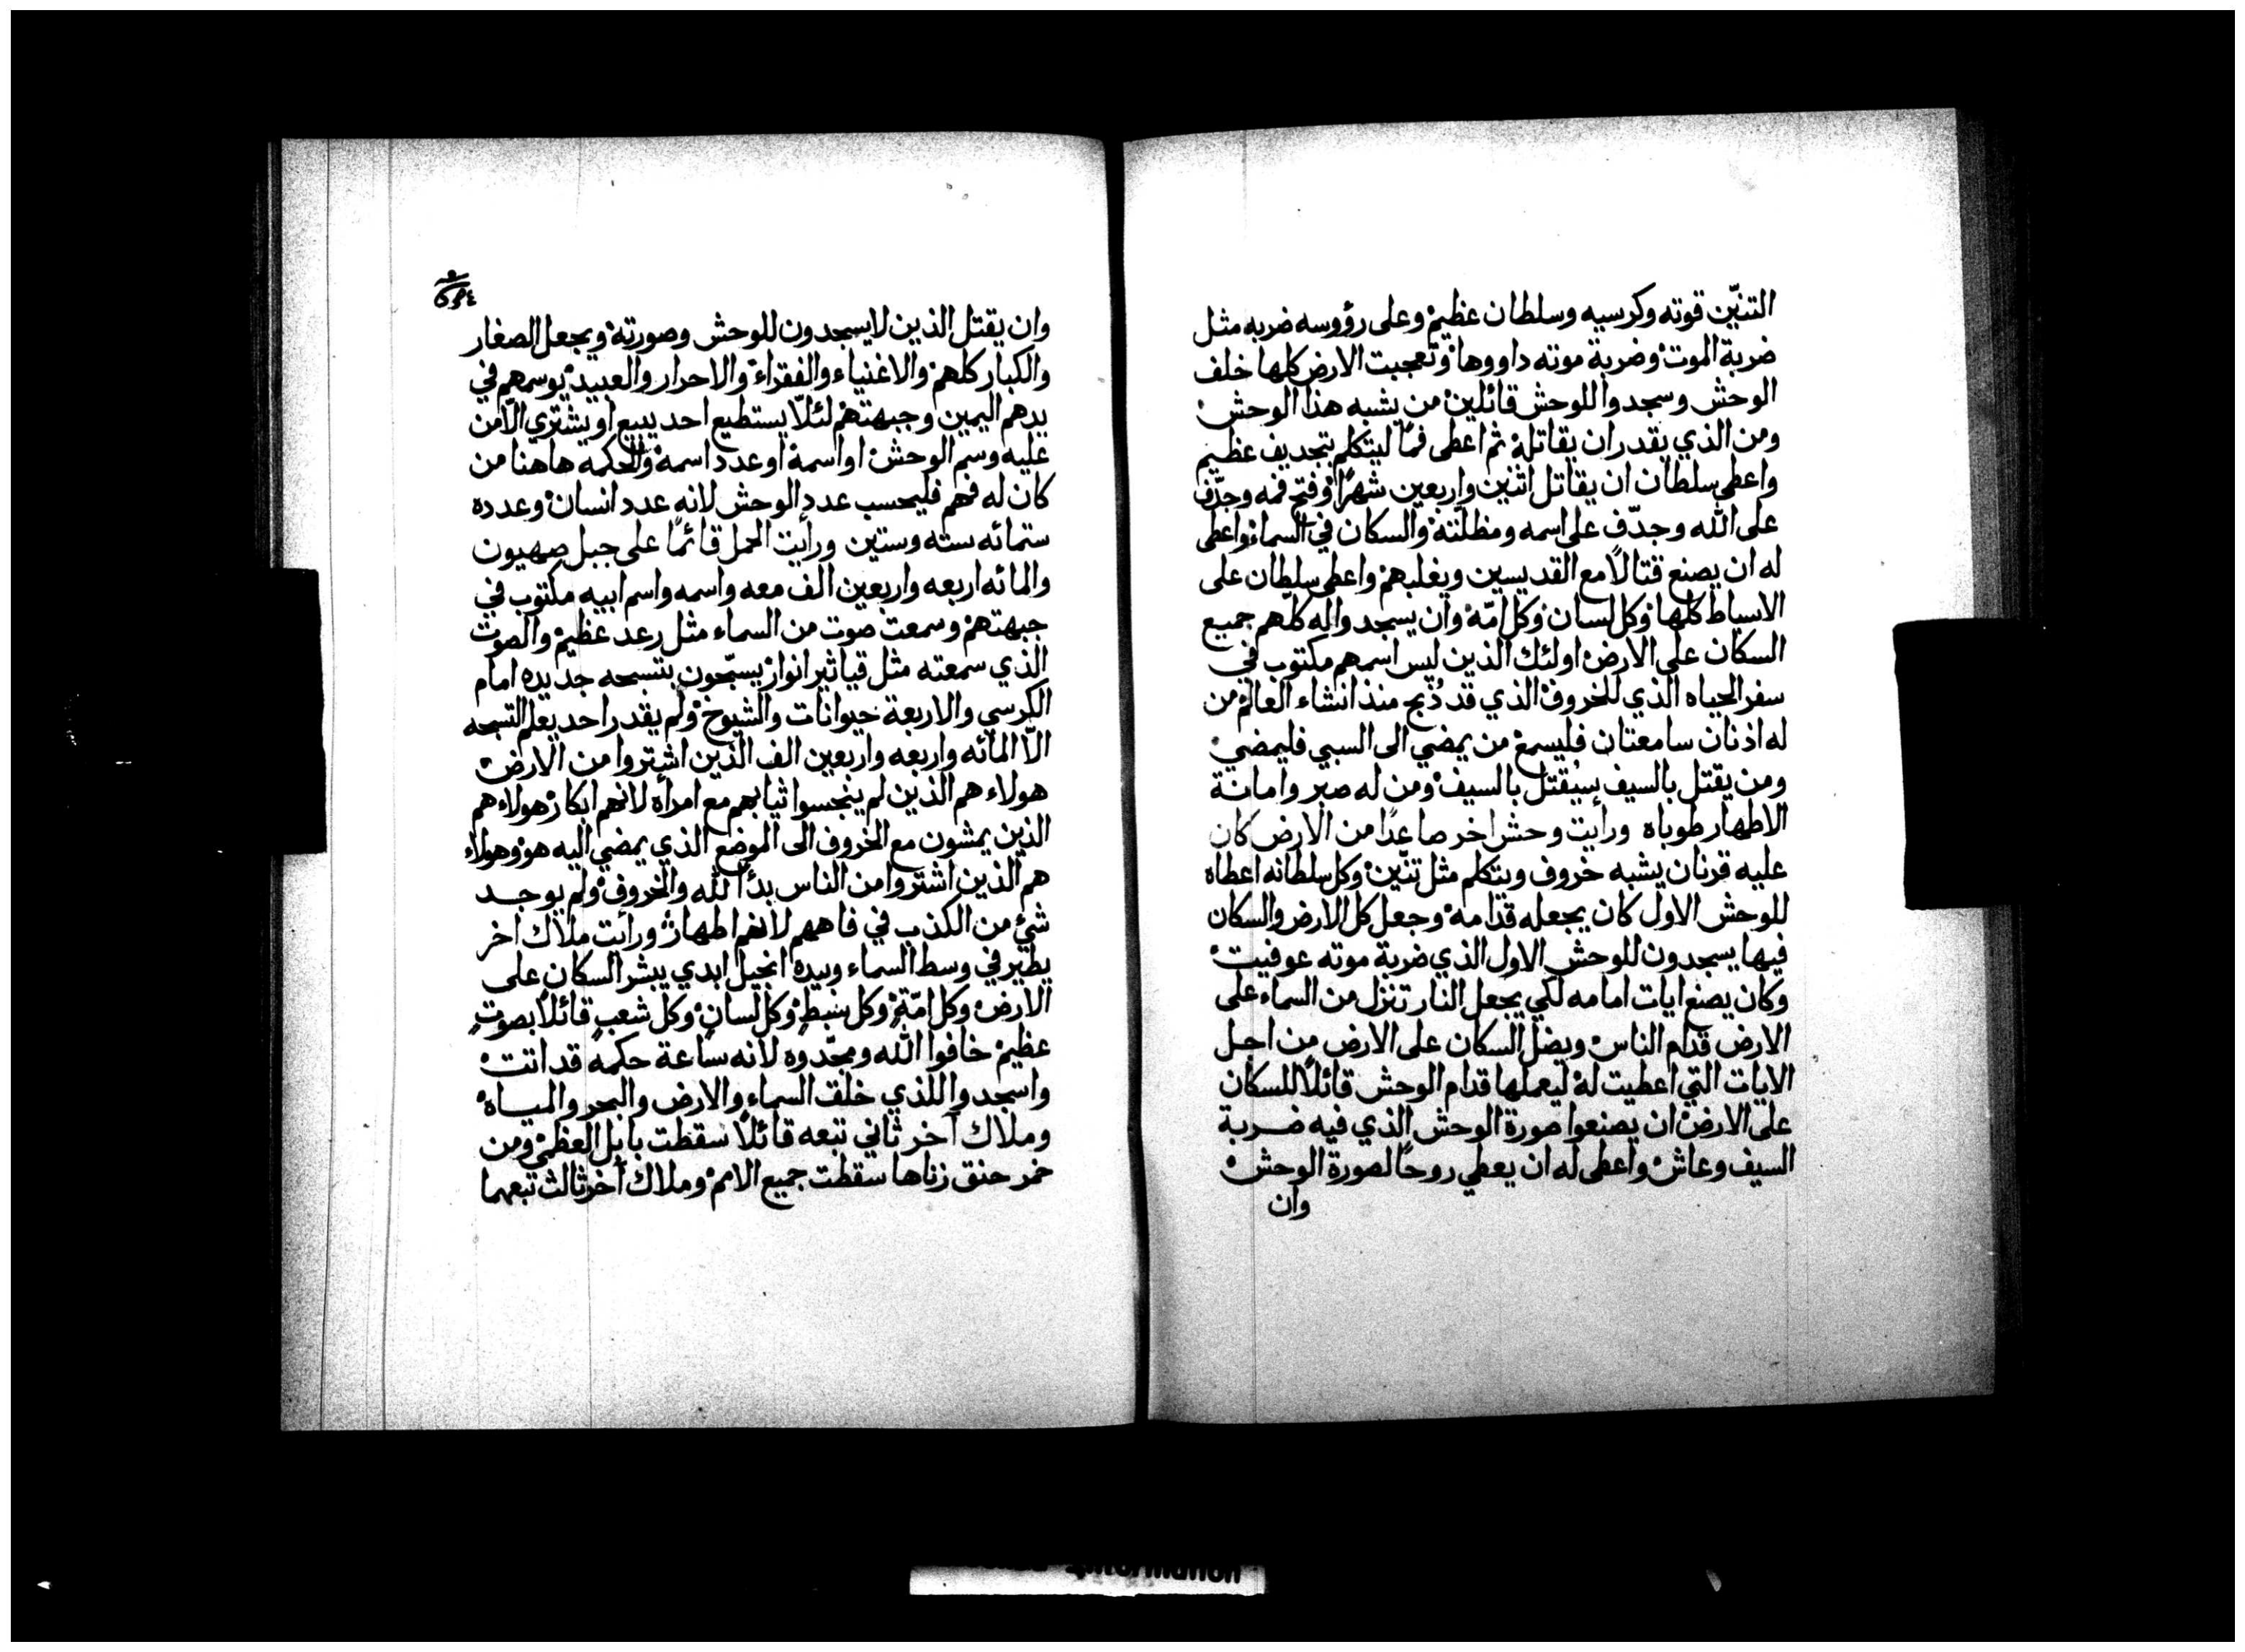 التنّين قوته وكرسيه وسلطان عظيم وعلى رؤوسه ضربه مثل
ضربة الموت وضربة موته داووها وتعجبت الارض كلها خلف
الوحش وسجدوا للوحش قائلين من يشبه هذا الوحش
ومن الذي يقدر ان يقاتله ثم اعطى فمًا ليتكلم بتجديف عظيم
واعطى سلطان ان يقاتل اثنين واربعين شهرًا وفتح فمه وجدّف
على الله وجدّف على اسمه ومظلّته والسكان في السماء واعطى
له ان يصنع قتالاً مع القديسين ويغلبهم واعطى سلطان على
الاسباط كلها وكل لسان وكل امّه وان يسجدوا له كلّهم جميع
السكان على الارض اولئك الذين ليس اسمهم مكتوب في
سفر الحياه الذي للخروف الذي قد ذُبح منذ انشاء العالم من
له اذنان سامعتان فليسمع من يمضي الى السبي فليمضي
ومن يقتل بالسيف سيُقتل بالسيف ومن له صبر وامانة
الاطهار طوباه ورأيت وحش اخر صاعدًا من الارض كان
عليه قرنان يشبه خروف ويتكلم مثل تنّين وكل سلطانه اعطاه
للوحش الاول كان يجعله قدامه وجعل كل الارض والسكان
فيها يسجدون للوحش الاول الذي ضربة موته عوفيت
وكان يصنع ايات امامه لكي يجعل النار تنزل من السماء على
الارض قدام الناس ويضل السكان على الارض من اجل
الايات التي اعطيت له ليعملها قدام الوحش قائلاً للسكان
على الارض ان يصنعوا صورة الوحش الذي فيه ضربة
السيف وعاش واعطى له ان يعطي روحًا لصورة الوحش
وان
وان يقتل الذين لا يسجدون للوحش وصورته ويجعل الصغار
والكبار كلهم والاغنياء والفقراء والاحرار والعبيد يوسمهم في
يدهم اليمين وجبهتهم لئلاّ يستطيع احد يبيع او يشتري الاّ من
عليه وسم الوحش او اسمه او عدد اسمه والحكمه هاهنا من
كان له فهم فليحسب عدد الوحش لانه عدد انسان وعدده
ستمائه سته وستين ورأيت الحمل قائمًا على جبل صهيون
والمائه اربعه واربعين الف معه واسمه واسم ابيه مكتوب في
جبهتهم وسمعت صوت من السماء مثل رعد عظيم والصوت
الذي سمعته مثل قياثير انوار يسبّحون بتسبحه جديده امام
الكرسي والاربعة حيوانات والشيوخ ولم يقدر احد يعلم التسبحه
الاّ المائه واربعه واربعين الف الذين اشتروا من الارض
هولاء هم الذين لم ينجسوا ثيابهم مع امرأه لانهم ابكار هولاء هم
الذين يمشون مع الخروف الى الموضع الذي يمضي اليه هو وهولاء
هم الذين اشتروا من الناس بدأ لله والخروف ولم يوجد
شئ من الكذب في فاههم لانهم اطهار ورأيت ملاك اخر
يطير في وسط السماء وبيده انجيل ابدي يبشر السكان على
الارض وكل امّةٍ وكل سبطٍ وكل لسانٍ وكل شعبٍ قائلاً بصوتٍ
عظيم خافوا الله ومجّدوه لانه ساعة حكمه قد اتت
واسجدوا للذي خلق السماء والارض والبحر والمياه
وملاك آخر ثاني تبعه قائلاً سقطت بابل العظمى ومن
خمر حنق زناها سقطت جميع الامم وملاك آخر ثالث تبعهما